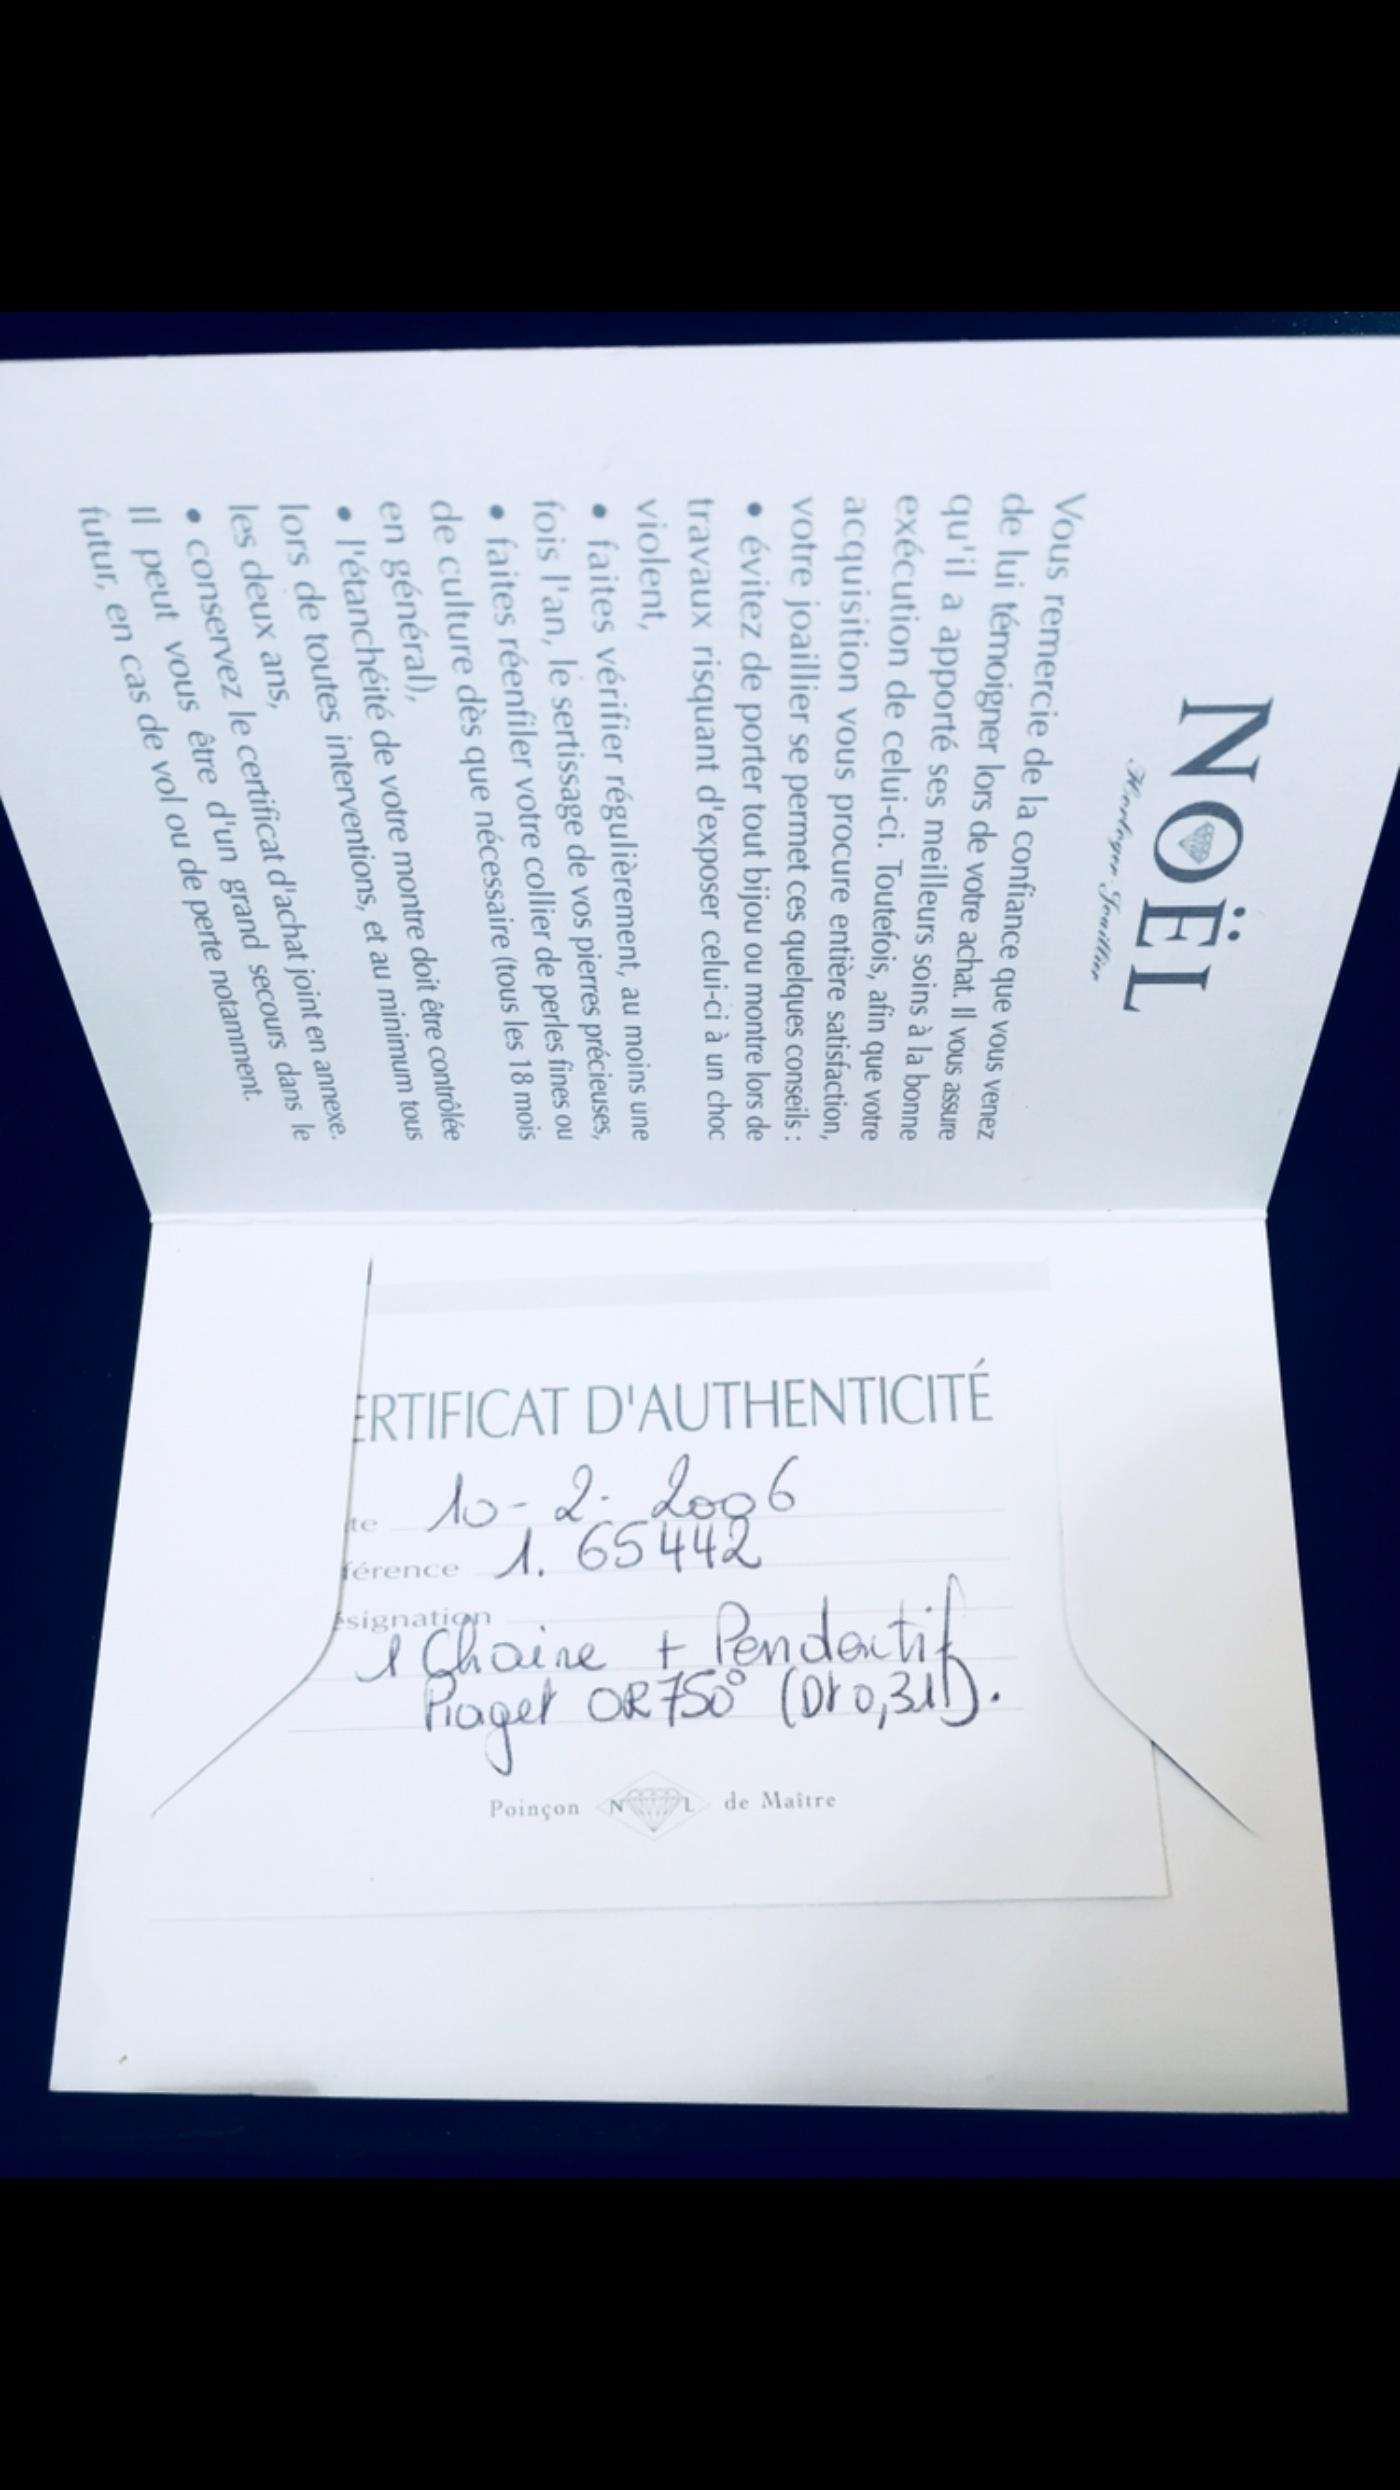 NOËL
Horloger Joaillier
Vous remercie de la confiance que vous venez
de lui témoigner lors de votre achat. Il vous assure
qu'il a apporté ses meilleurs soins à la bonne
exécution de celui-ci. Toutefois, afin que votre
acquisition vous procure entière satisfaction,
votre joaillier se permet ces quelques conseils :
• évitez de porter tout bijou ou montre lors de
travaux risquant d'exposer celui-ci à un choc
violent,
• faites vérifier régulièrement, au moins une
fois l'an, le sertissage de vos pierres précieuses,
• faites réenfiler votre collier de perles fines ou
de culture dès que nécessaire (tous les 18 mois
en général),
• l'étanchéité de votre montre doit être contrôlée
lors de toutes interventions, et au minimum tous
les deux ans,
• conservez le certificat d'achat joint en annexe.
Il peut vous être d'un grand secours dans le
futur, en cas de vol ou de perte notamment.
ERTIFICAT D'AUTHENTICITÉ
te 10-2-2006
férence 1.65442
signation
1 Chaine + Pendentif
Piaget OR 750° (Dt
Poinçon N L de Maître